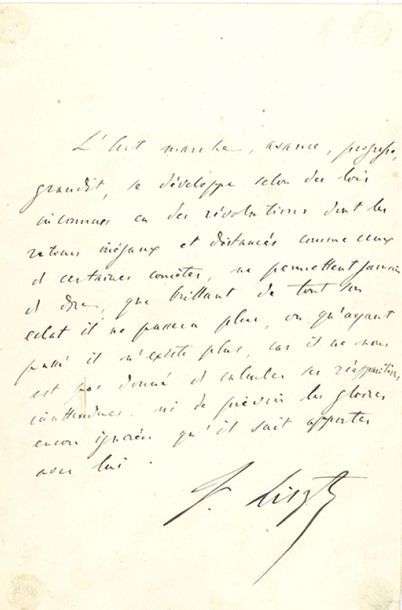 L'Art marche, avance, progresse,
grandit, se développe selon des lois
inconnues en des révolutions dont les
retours inégaux et distancés comme ceux
d certaines comètes, ne permettent jamais
d dire, que brillant de tout son
eclat il ne passera plus, ou qu'ayant
passé il n'existe plus, car il ne nous
est pas donné d calculer ses réapparitions
inattendues. ni de prévoir les gloires
encore ignorées qu'il sait apporter
avec lui.
F. Liszt